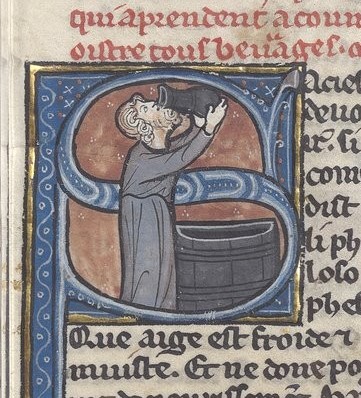 qui aprendent a cour
oistre tous beurages.
Aciel
deuo
com
dist
li ph
loso
phe
Que aige est froide ⁊
muiste. Et ne done po